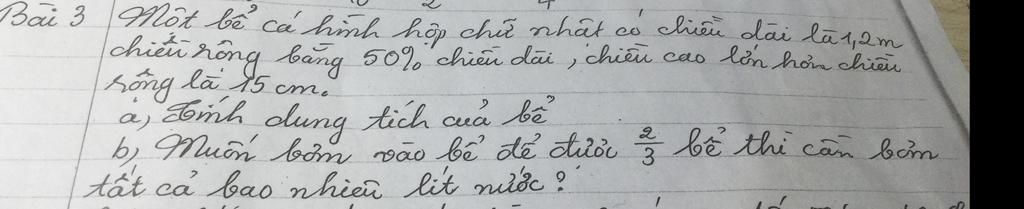 Bài 3 Một bể cá hình hộp chữ nhật có chiều dài là 1,2m
chiều rộng bằng 50% chiều dài, chiều cao lớn hơn chiều
rộng là 15 cm.
a, Tính dung tích của bể
b, Muốn bơm vào bể để được 2/3 bể thì cần bơm
tất cả bao nhiêu lít nước?